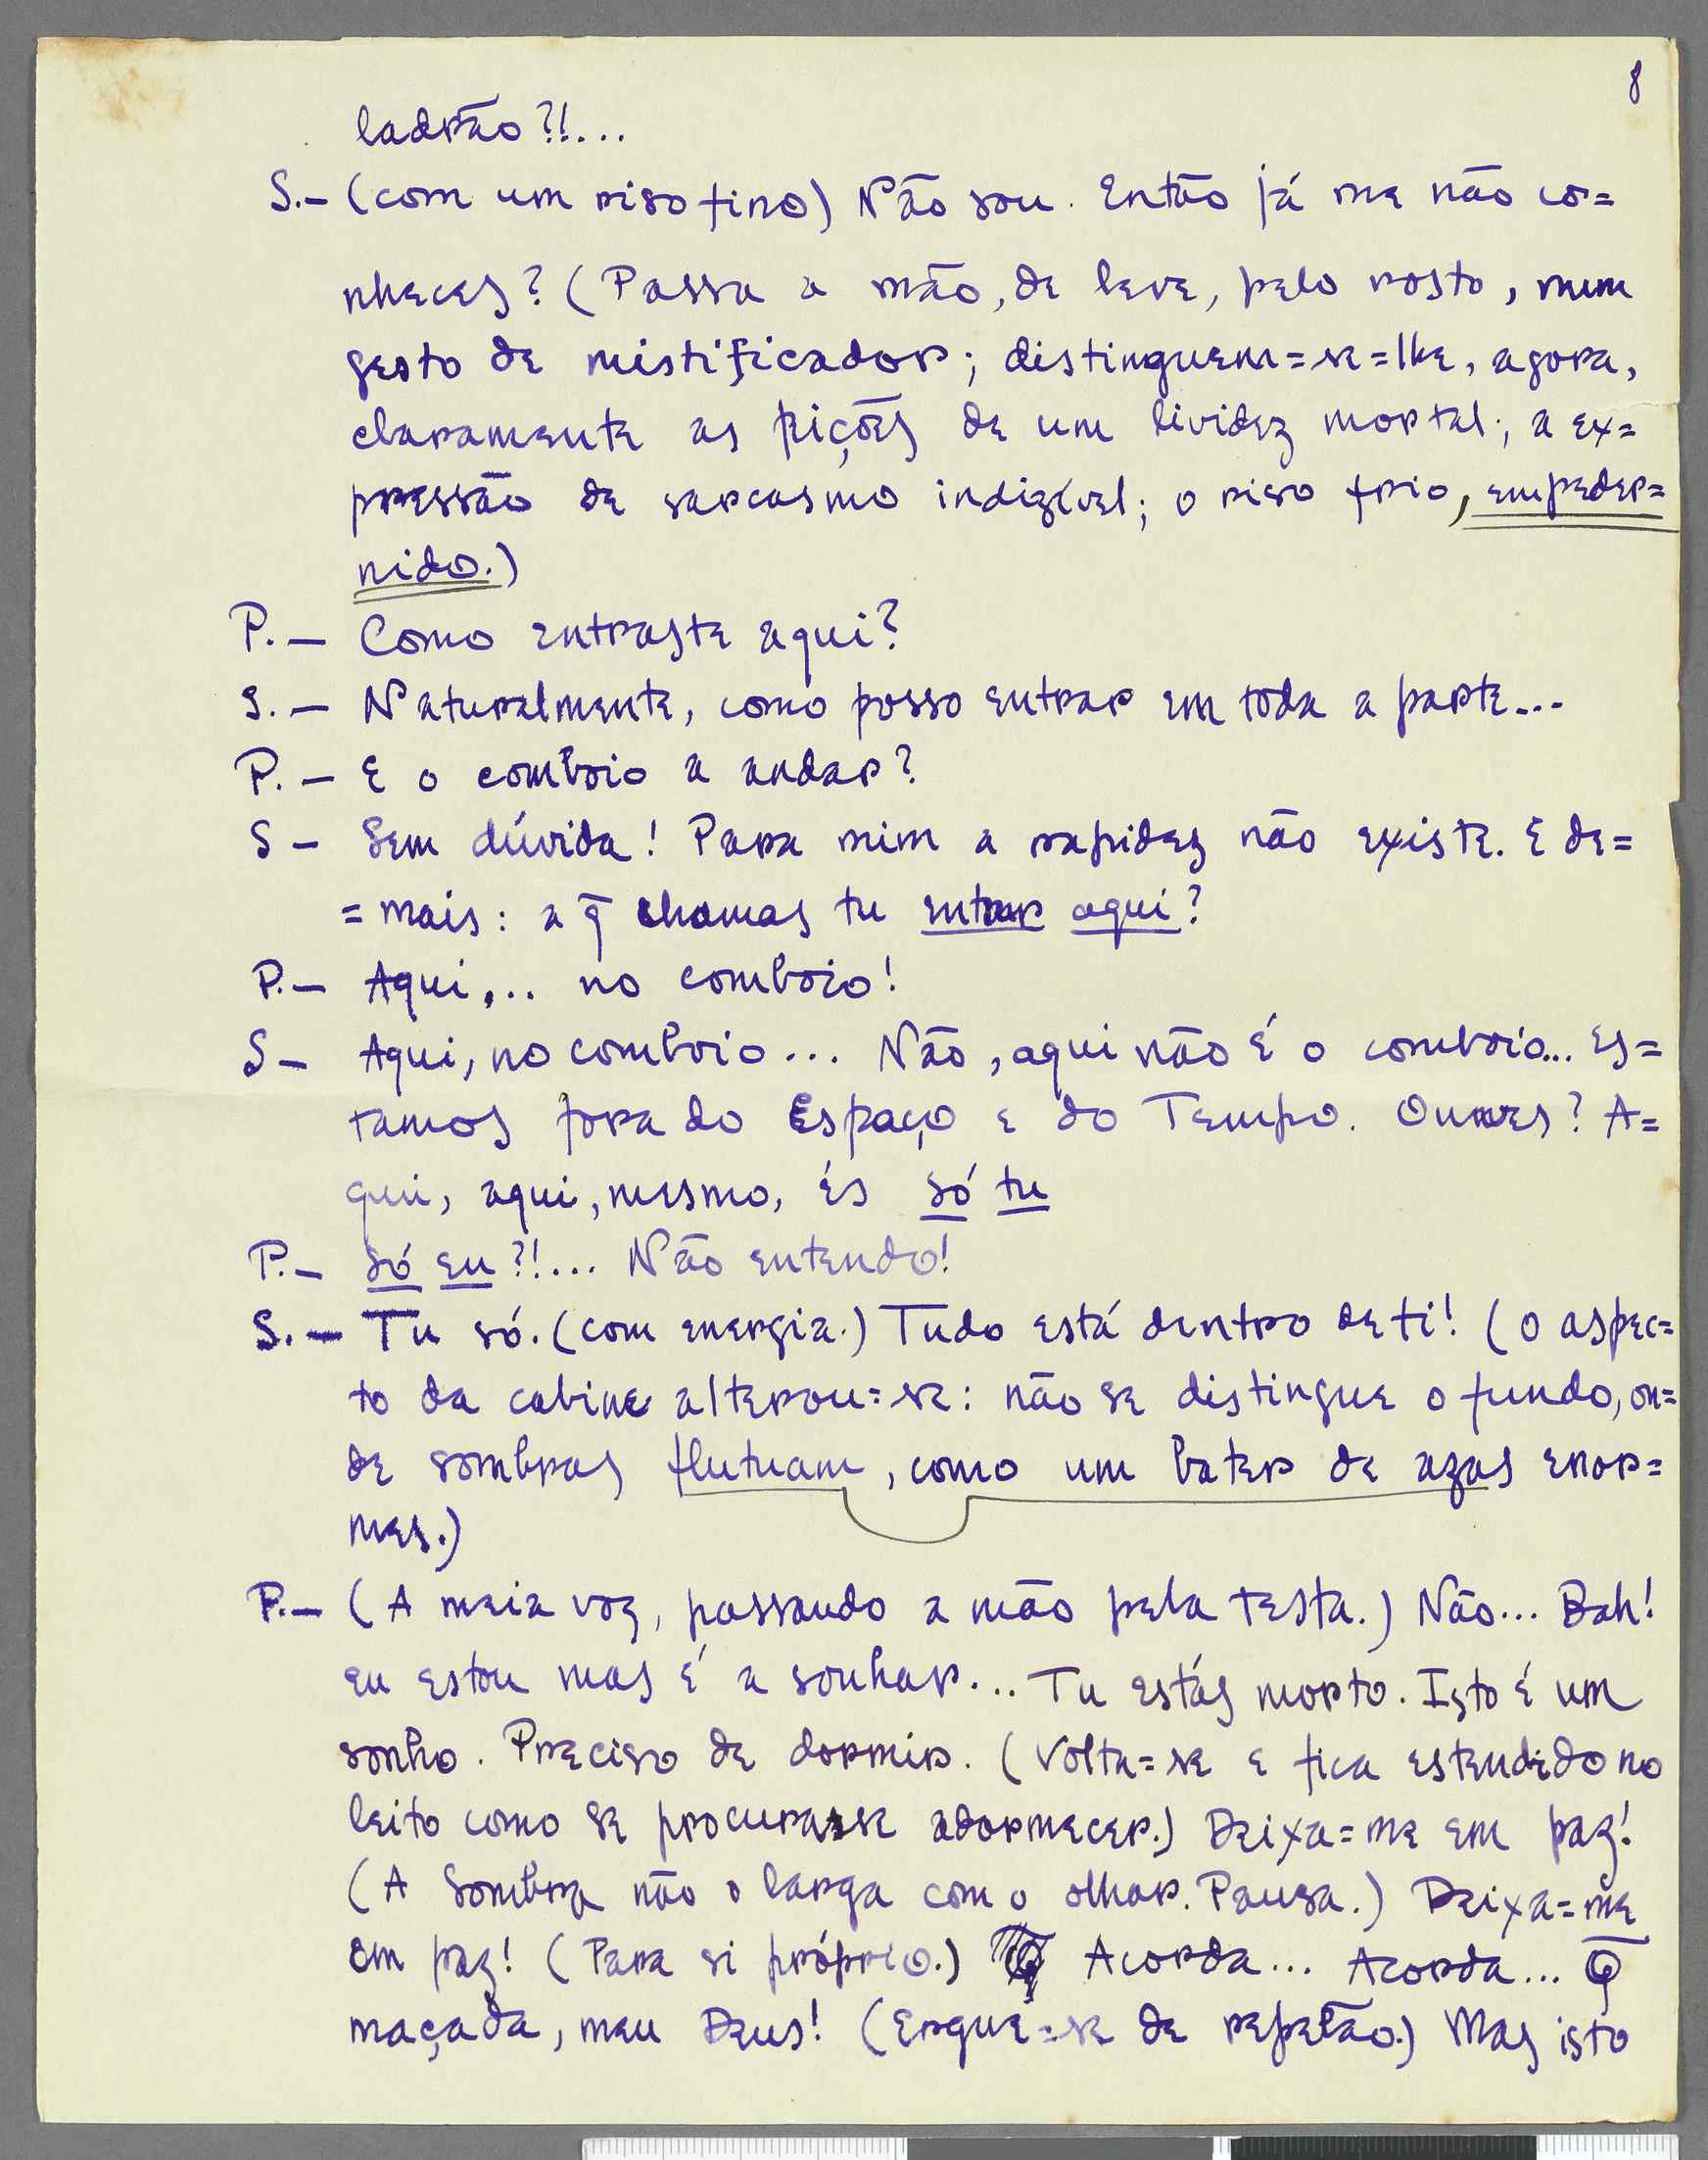 8
ladrão?!...
S.- (com um riso fino) Não sou. Então já me não co=
nheces? (Passa a mão, de leve, pelo rosto, num
gesto de mistificador; distinguem=se=lhe, agora,
claramente as feições de um lividez mortal; a ex=
pressão de sarcasmo indizível; o riso frio, empeder=
nido.)
P. - Como entraste aqui?
S. - Naturalmente, como posso entrar em toda a parte...
P. - E o comboio a andar?
S - Sem dúvida! Para mim a rapidez não existe. E de=
= mais: a q̄ chamas tu entrar aqui?
P. - Aqui... no comboio!
S - Aqui, no comboio... Não, aqui não é o comboio... Es=
tamos fora do Espaço e do Tempo. Ouves? A=
qui, aqui, mesmo, és só tu
P. - Só eu?!... Não entendo!
S. - Tu só. (com energia.) Tudo está dentro de ti! (O aspec=
to da cabine alterou=se: não se distingue o fundo, on=
de sombras flutuam, como um bater de azas enor=
mes.)
P. - (A meia voz, passando a mão pela testa.) Não... Bah!
eu estou mas é a sonhar... Tu estás morto. Isto é um
sonho. Preciso de dormir. (Volta=se e fica estendido no
leito como se procurasse adormecer.) Deixa=me em paz!
(A Sombra não o larga com o olhar. Pausa.) Deixa=me
em paz! (Para si próprio.) Acorda... Acorda... Q̄
maçada, meu Deus! (Ergue=se de repelão.) Mas isto